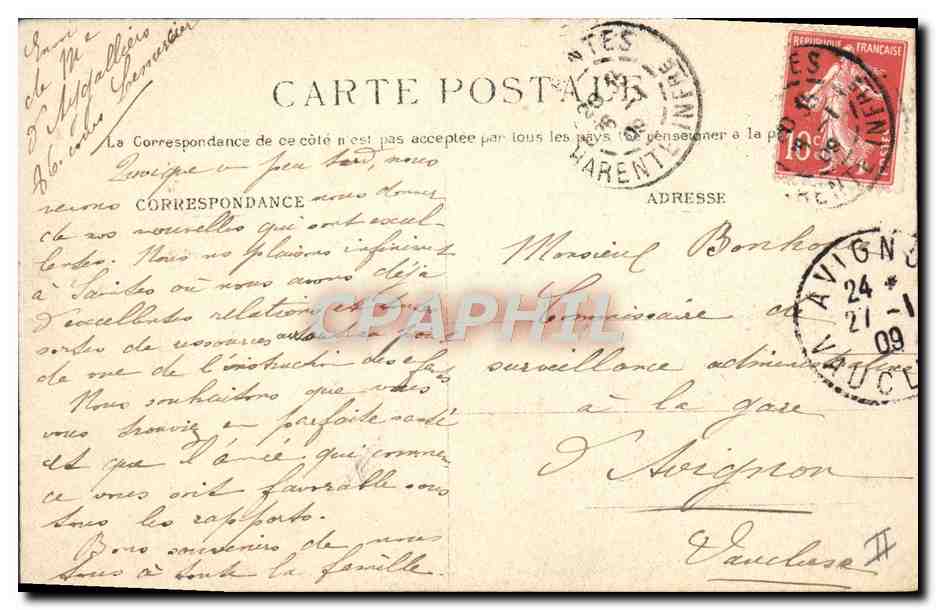 Envoi
de Mr
d'Aygalliers
86 cours Lemercier
CARTE POSTALE
La Correspondance de ce côté n'est pas acceptée par tous les pays (se renseigner à la p
CORRESPONDANCE
ADRESSE
Quoique un peu tard, nous
venons nous donner
de nos nouvelles qui sont excel
lentes. Nous ns plaisons infiniment
à Saintes où nous avons déjà
d'excellentes relations et
sortes de ressources au point
de vue de l'instruction des enfts
Nous souhaitons que
vous trouvie en parfaite santé
et que l'année qui commen
ce vous soit favorable sous
tous les rapports.
Bons souvenirs de nous
tous à toute la famille.
Monsieur Bonho
Commissaire de
surveillance administrative
à la gare
d'Avignon
Vaucluse
II
REPUBLIQUE FRANÇAISE
10c
NTES
HARENTE INFRE
AVIGNO
24 *
27 -1
09
VAUCL
CPAPHIL